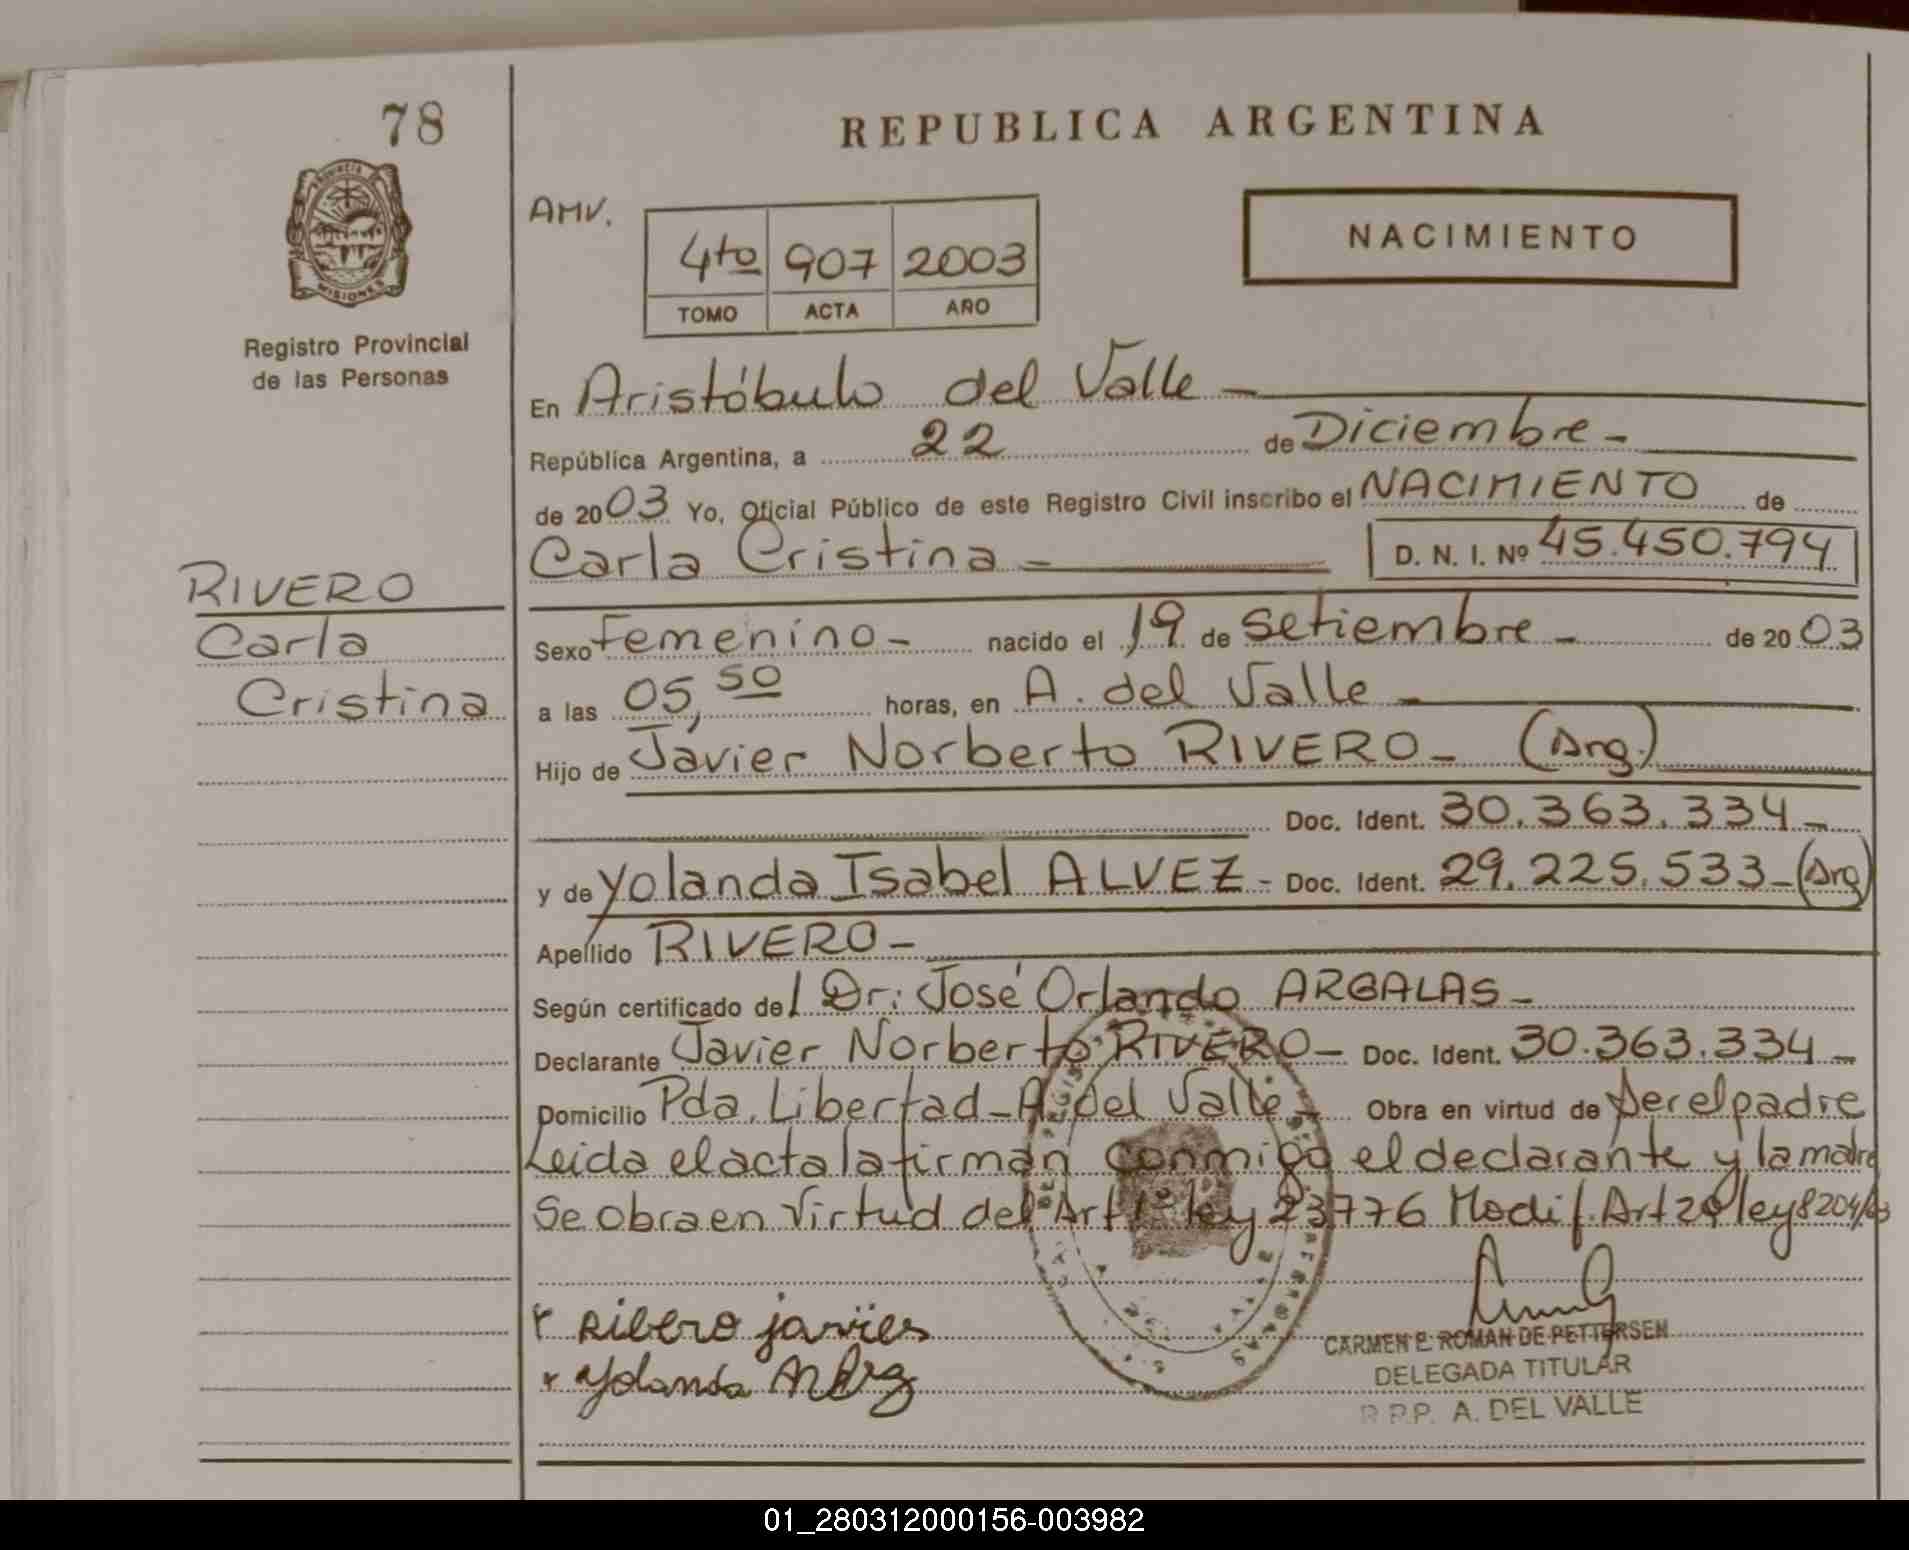 78
REPUBLICA ARGENTINA
PROVINCIA
MISIONES
Registro Provincial
de las Personas
AMV.
4to 907 2003
TOMO ACTA AÑO
NACIMIENTO
En Aristóbulo del Valle -
República Argentina, a 22 de Diciembre -
de 2003 Yo, Oficial Público de este Registro Civil inscribo el NACIMIENTO de
Carla Cristina - D. N. I. Nº 45.450.794
RIVERO
Carla
Cristina
Sexo Femenino - nacido el 19 de Setiembre - de 2003
a las 05,50 horas, en A. del Valle -
Hijo de Javier Norberto RIVERO - (Arg.)
Doc. Ident. 30.363.334 -
y de Yolanda Isabel ALVEZ - Doc. Ident. 29.225.533 - (Arg)
Apellido RIVERO -
Según certificado del Dr: José Orlando ARGALAS -
Declarante Javier Norberto RIVERO - Doc. Ident. 30.363.334 -
Domicilio Pda. Libertad - A. del Valle - Obra en virtud de ser el padre
Leida el acta la firman conmigo el declarante y la madre
Se obra en virtud del Art 1º ley 23776 Modif. Art 29 ley 8204/63
x Ribero javier
x Yolanda
CARMEN E. ROMAN DE PETTERSEN
DELEGADA TITULAR
R.P.P. A. DEL VALLE
01_280312000156-003982